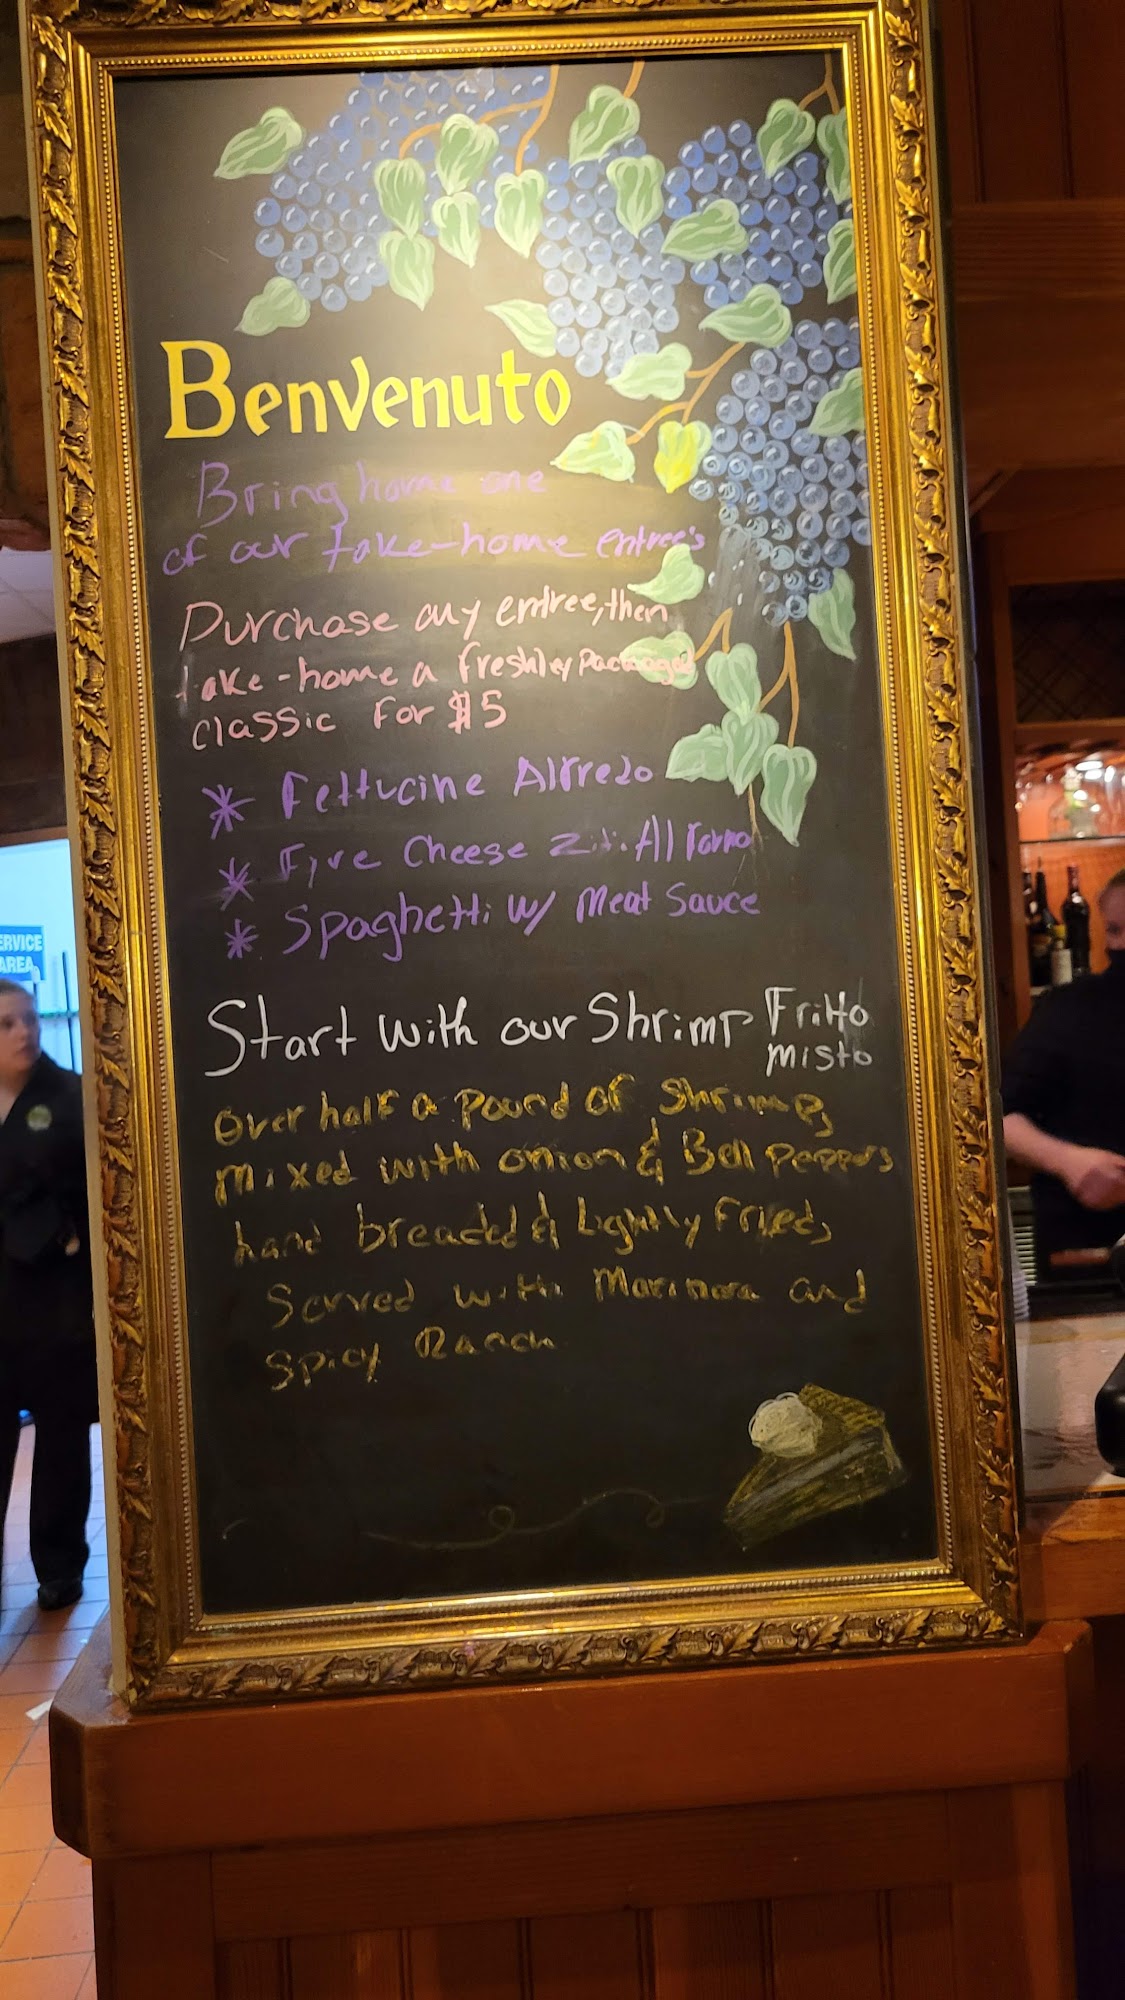 Benvenuto
Bring home one
of our take-home entree's
Purchase any entree, then
take-home a freshley packaged
classic for $5
* Fettucine Alfredo
* Fyve Cheese Ziti Al Forno
* Spaghetti w/ Meat Sauce
Start with our Shrimp Fritto
misto
over half a pound of Shrimp,
mixed with onion & Bell Peppers
hand breaded & Lightly Fried,
Served with Marinara and
Spicy Ranch
ERVICE
AREA